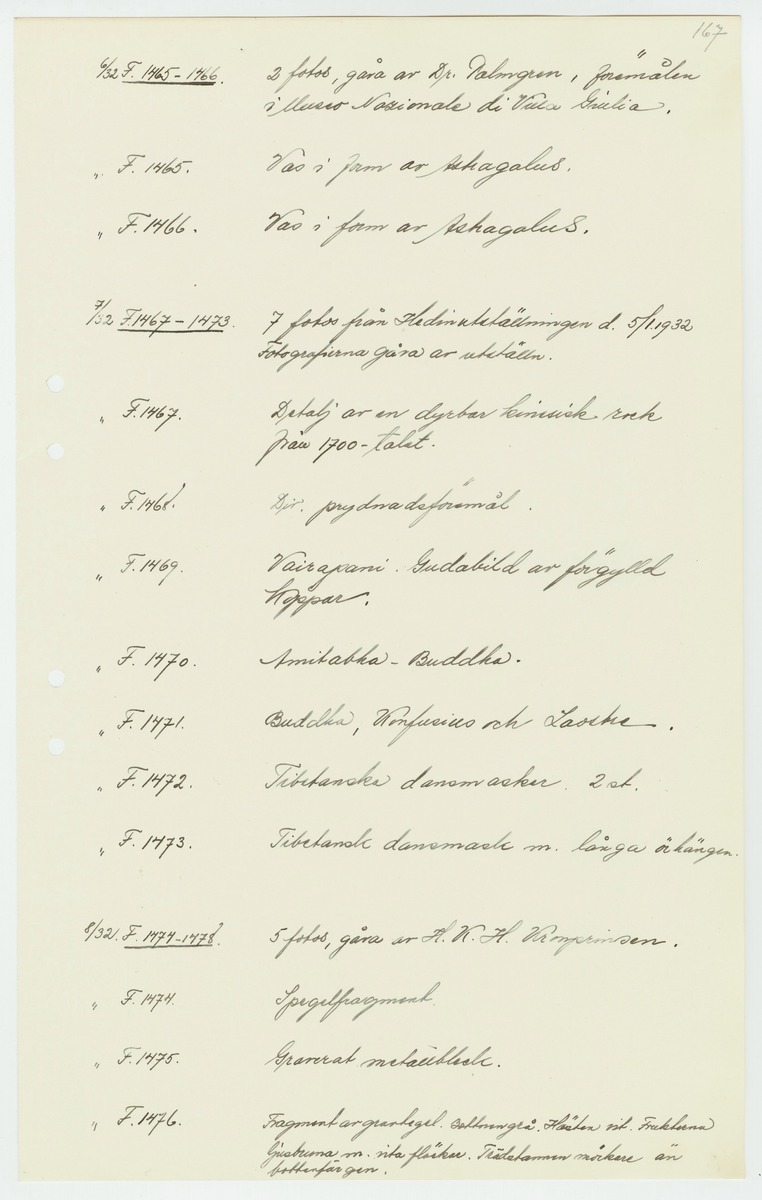 167
6/32 F. 1465-1466. 2 fotos, gåva av Dr. Palmgren, föremålen
i Museo Nazionale di Villa Giulia.
" F. 1465. Vas i form av Astragalus.
" F. 1466. Vas i form av Astragalus.
7/32 F. 1467-1473. 7 fotos från Hedinutställningen d. 5/1.1932
Fotografierna gåva av utställn.
" F. 1467. Detalj av en dyrbar kinesisk rock
från 1700-talet.
" F. 1468. Div. prydnadsföremål.
" F. 1469. Vairapani. Gudabild av förgylld
koppar.
" F. 1470. Amitabha - Buddha.
" F. 1471. Buddha, Konfusius och Laotse.
" F. 1472. Tibetanska dansmasker. 2 st.
" F. 1473. Tibetansk dansmask m. långa örhängen.
8/32. F. 1474-1478. 5 fotos, gåva av H. K. H. Kronprinsen.
" F. 1474. Spegelfragment.
" F. 1475. Graverat metallbleck.
" F. 1476. Fragment av gravtegel. Bottnen grå. Hästen vit. Frukterna
ljusbruna m. vita fläckar. Trädstammen mörkare än
bottenfärgen.